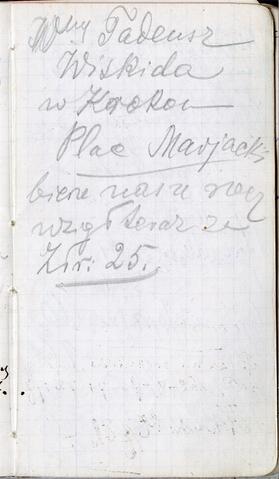 Wny Tadeusz
Wiskida
w Krakow
Plac Marjacki
bierze nasze
wzgl teraz za
Złr: 25.